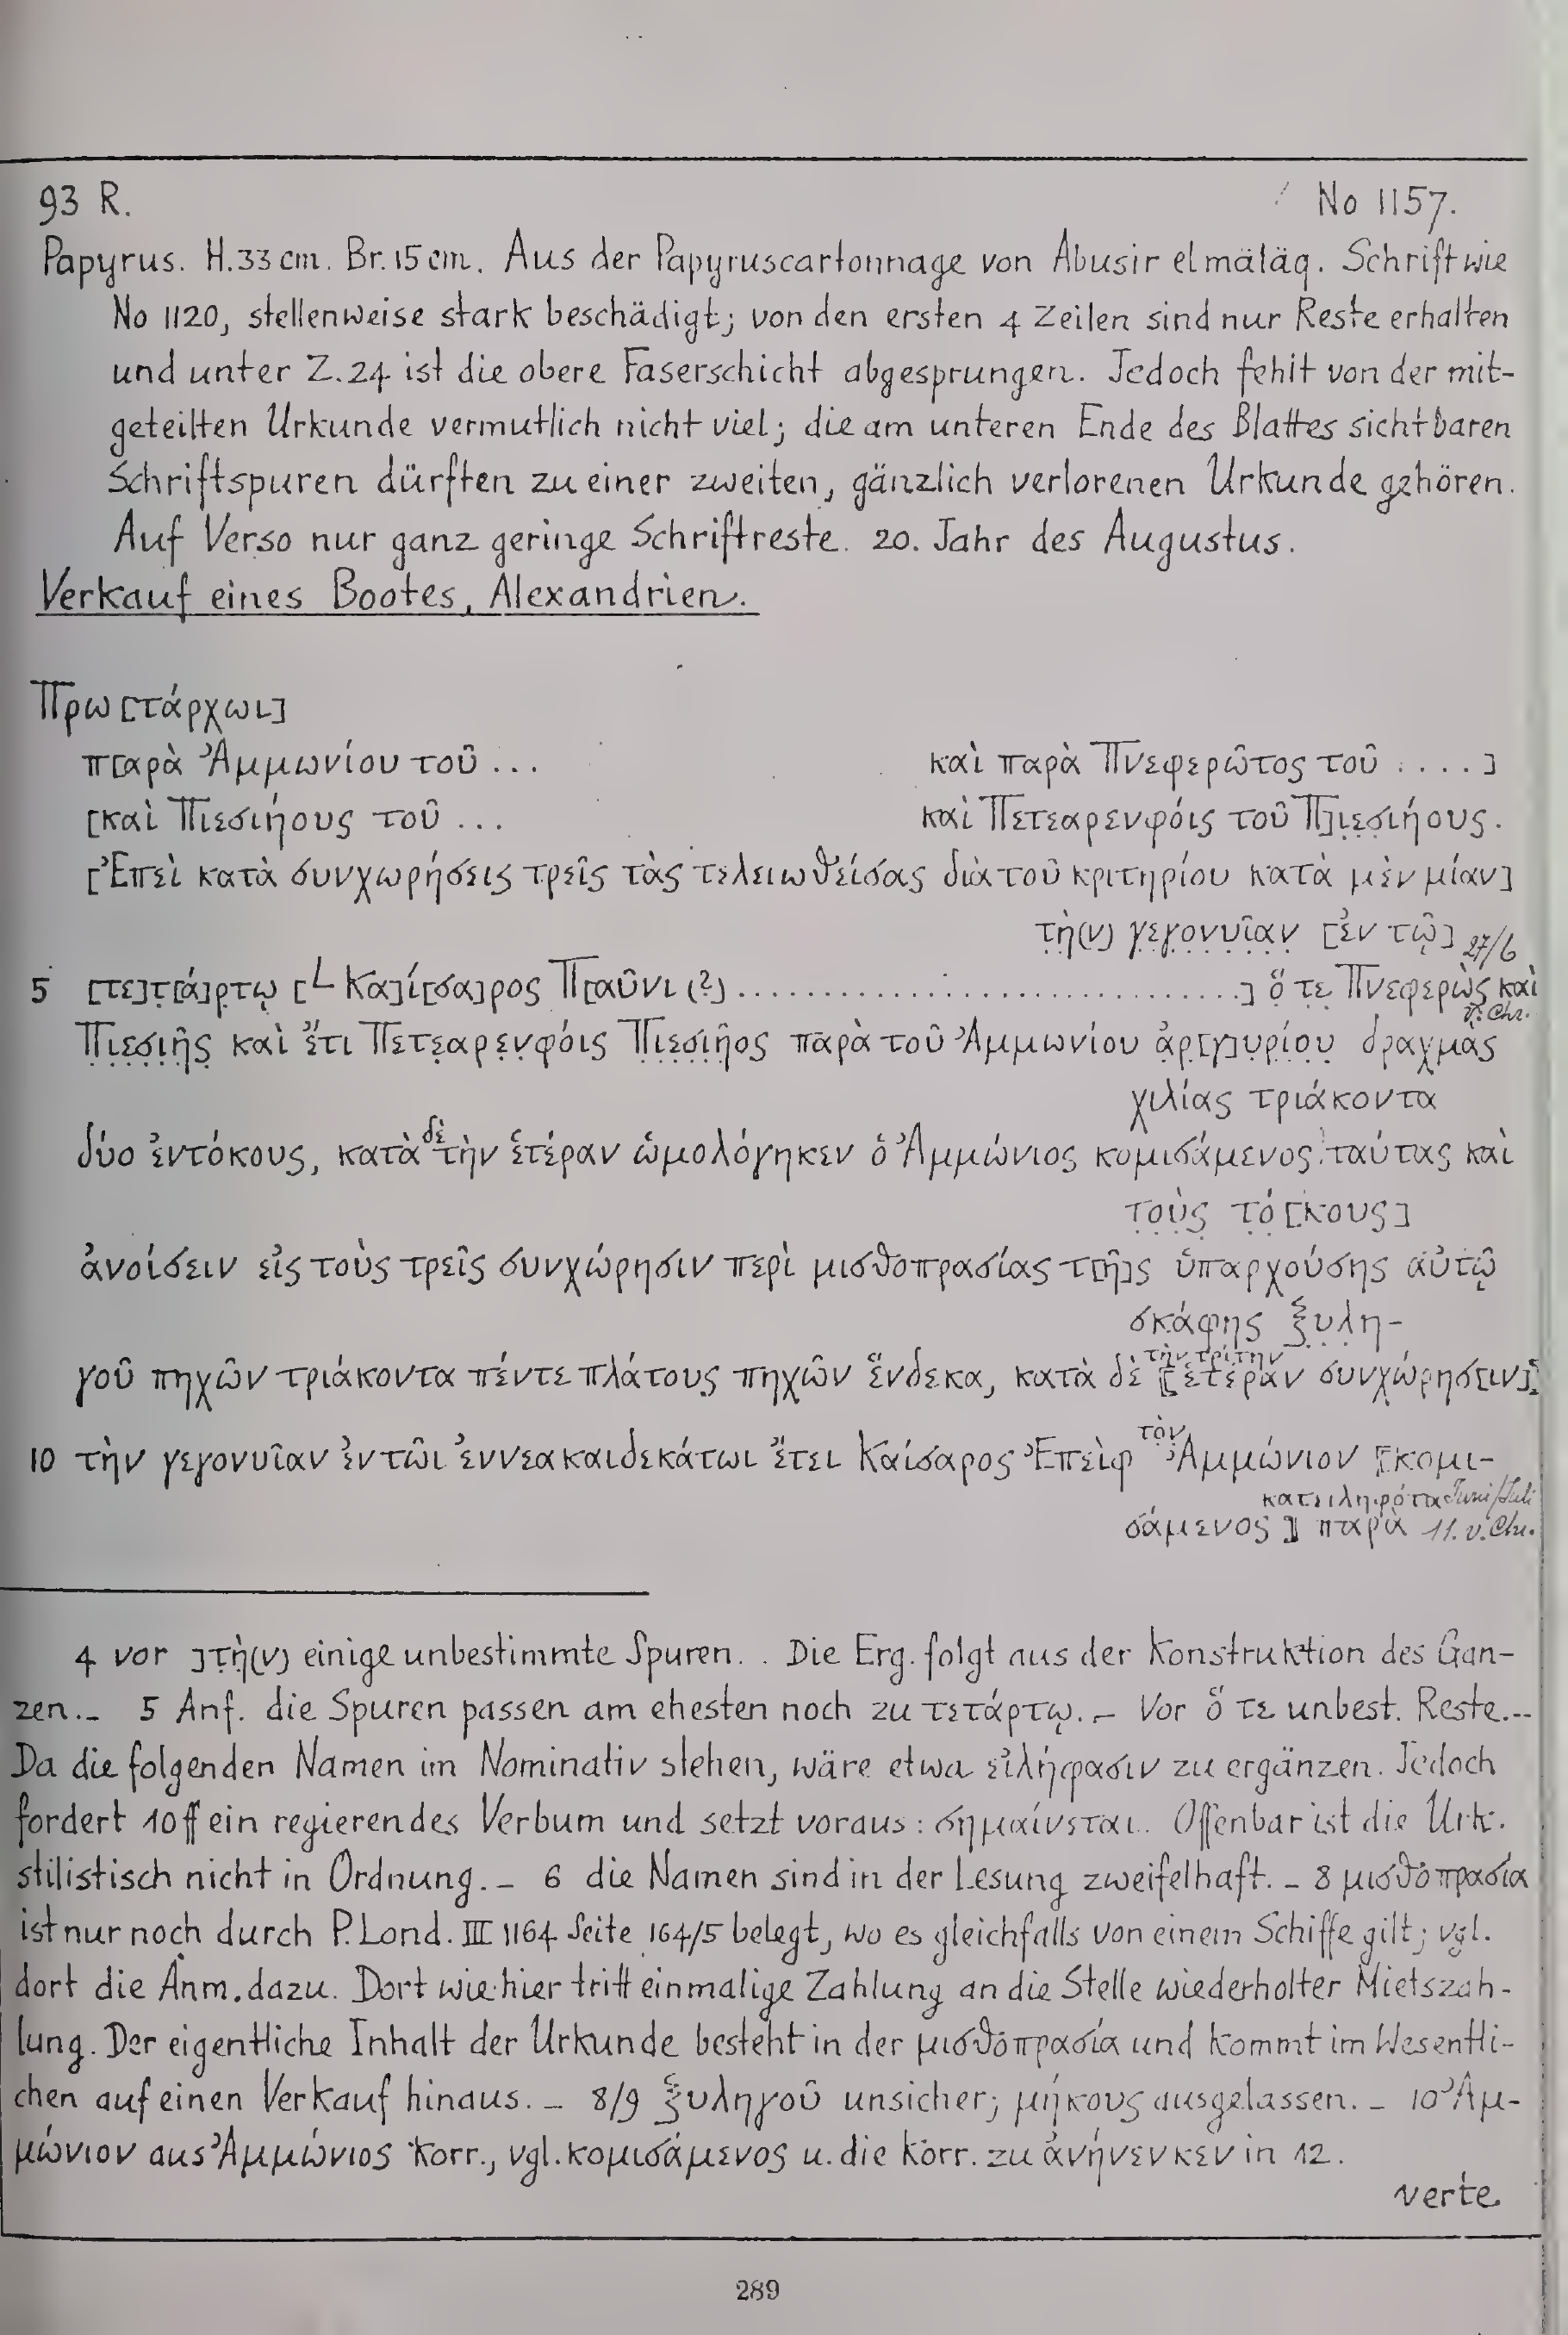 93 R. No 1157.
Papyrus. H. 33 cm. Br. 15 cm. Aus der Papyruscartonnage von Abusir el mäläq. Schrift wie
No 1120, stellenweise stark beschädigt; von den ersten 4 Zeilen sind nur Reste erhalten
und unter Z. 24 ist die obere Faserschicht abgesprungen. Jedoch fehlt von der mit-
geteilten Urkunde vermutlich nicht viel; die am unteren Ende des Blattes sichtbaren
Schriftspuren dürften zu einer zweiten, gänzlich verlorenen Urkunde gehören.
Auf Verso nur ganz geringe Schriftreste. 20. Jahr des Augustus.
Verkauf eines Bootes, Alexandrien.
Πρω[τάρχωι]
π[αρὰ Ἀμμωνίου τοῦ ... καὶ παρὰ Πνεφερῶτος τοῦ ....]
[καὶ Πιεσιήους τοῦ ... καὶ Πετεαρενφόις τοῦ Π]ι̣ε̣σ̣ιήους.
[Ἐπεὶ κατὰ συνχωρήσεις τρεῖς τὰς τελειωθείσας διὰ τοῦ κριτηρίου κατὰ μὲν μίαν]
τὴ̣(ν) γ̣ε̣γ̣ο̣ν̣υ̣ῖ̣α̣ν̣ [ἐν τῷ] 27/6
5 [τε]τ̣[ά]ρ̣τῳ̣ [L Κα]ί[σα]ρος Π[αῦνι (?) ..............................] ὅ̣ τ̣ε̣ Πνεφερὼ̣ς̣ καὶ
v. Chr.
Π̣ι̣ε̣σ̣ι̣ῆ̣ς̣ καὶ ἔ̣τι Πετε̣αρε̣ν̣φόις Π̣ι̣ε̣σ̣ι̣ῆ̣ος παρὰ τοῦ Ἀμμωνίου ἀ̣ρ̣[γ]υ̣ρ̣ί̣ο̣υ̣ δραχμὰς
χιλίας τριάκοντα
δύο ἐντόκους, κατὰ δὲ τὴν ἑτέραν ὡμολόγηκεν ὁ Ἀμμώνιος κομισάμενος ταύτας καὶ
τ̣ο̣ὺ̣ς̣ τ̣ό̣[κους]
ἀνοίσειν εἰς τοὺς τρεῖς συνχώρησιν περὶ μισθοπρασίας τ[ῆ]ς ὑπαρχούσης αὐτῷ
σκάφης ξ̣υ̣λ̣η̣-
τὴν τρίτην
γοῦ πηχῶν τριάκοντα πέντε πλάτους πηχῶν ἕνδεκα, κατὰ δὲ ⟦ἑτέραν συνχώρησ[ιν]⟧
10 τὴν γεγονυῖαν ἐν τῶι ἐννεακαιδεκάτωι ἔτει Καίσαρος Ἐπεὶφ τὸν Ἀμμώνιον ⟦κομι-
κατειληφότα Juni/Juli
σάμενος⟧ παρὰ 11. v. Chr.
4 vor ]τὴ̣(ν) einige unbestimmte Spuren. . Die Erg. folgt aus der Konstruktion des Gan-
zen. – 5 Anf. die Spuren passen am ehesten noch zu τετάρτῳ. – Vor ὅ τε unbest. Reste. –
Da die folgenden Namen im Nominativ stehen, wäre etwa εἰλήφασιν zu ergänzen. Jedoch
fordert 10ff ein regierendes Verbum und setzt voraus: σημαίνεται. Offenbar ist die Urk.
stilistisch nicht in Ordnung. – 6 die Namen sind in der Lesung zweifelhaft. – 8 μισθοπρασία
ist nur noch durch P. Lond. III 1164 Seite 164/5 belegt, wo es gleichfalls von einem Schiffe gilt; vgl.
dort die Anm. dazu. Dort wie hier tritt einmalige Zahlung an die Stelle wiederholter Mietszah-
lung. Der eigentliche Inhalt der Urkunde besteht in der μισθοπρασία und kommt im Wesentli-
chen auf einen Verkauf hinaus. – 8/9 ξυληγοῦ unsicher; μήκους ausgelassen. – 10 Ἀμ-
μώνιον aus Ἀμμώνιος korr., vgl. κομισάμενος u. die Korr. zu ἀνήνενκεν in 12.
verte
289